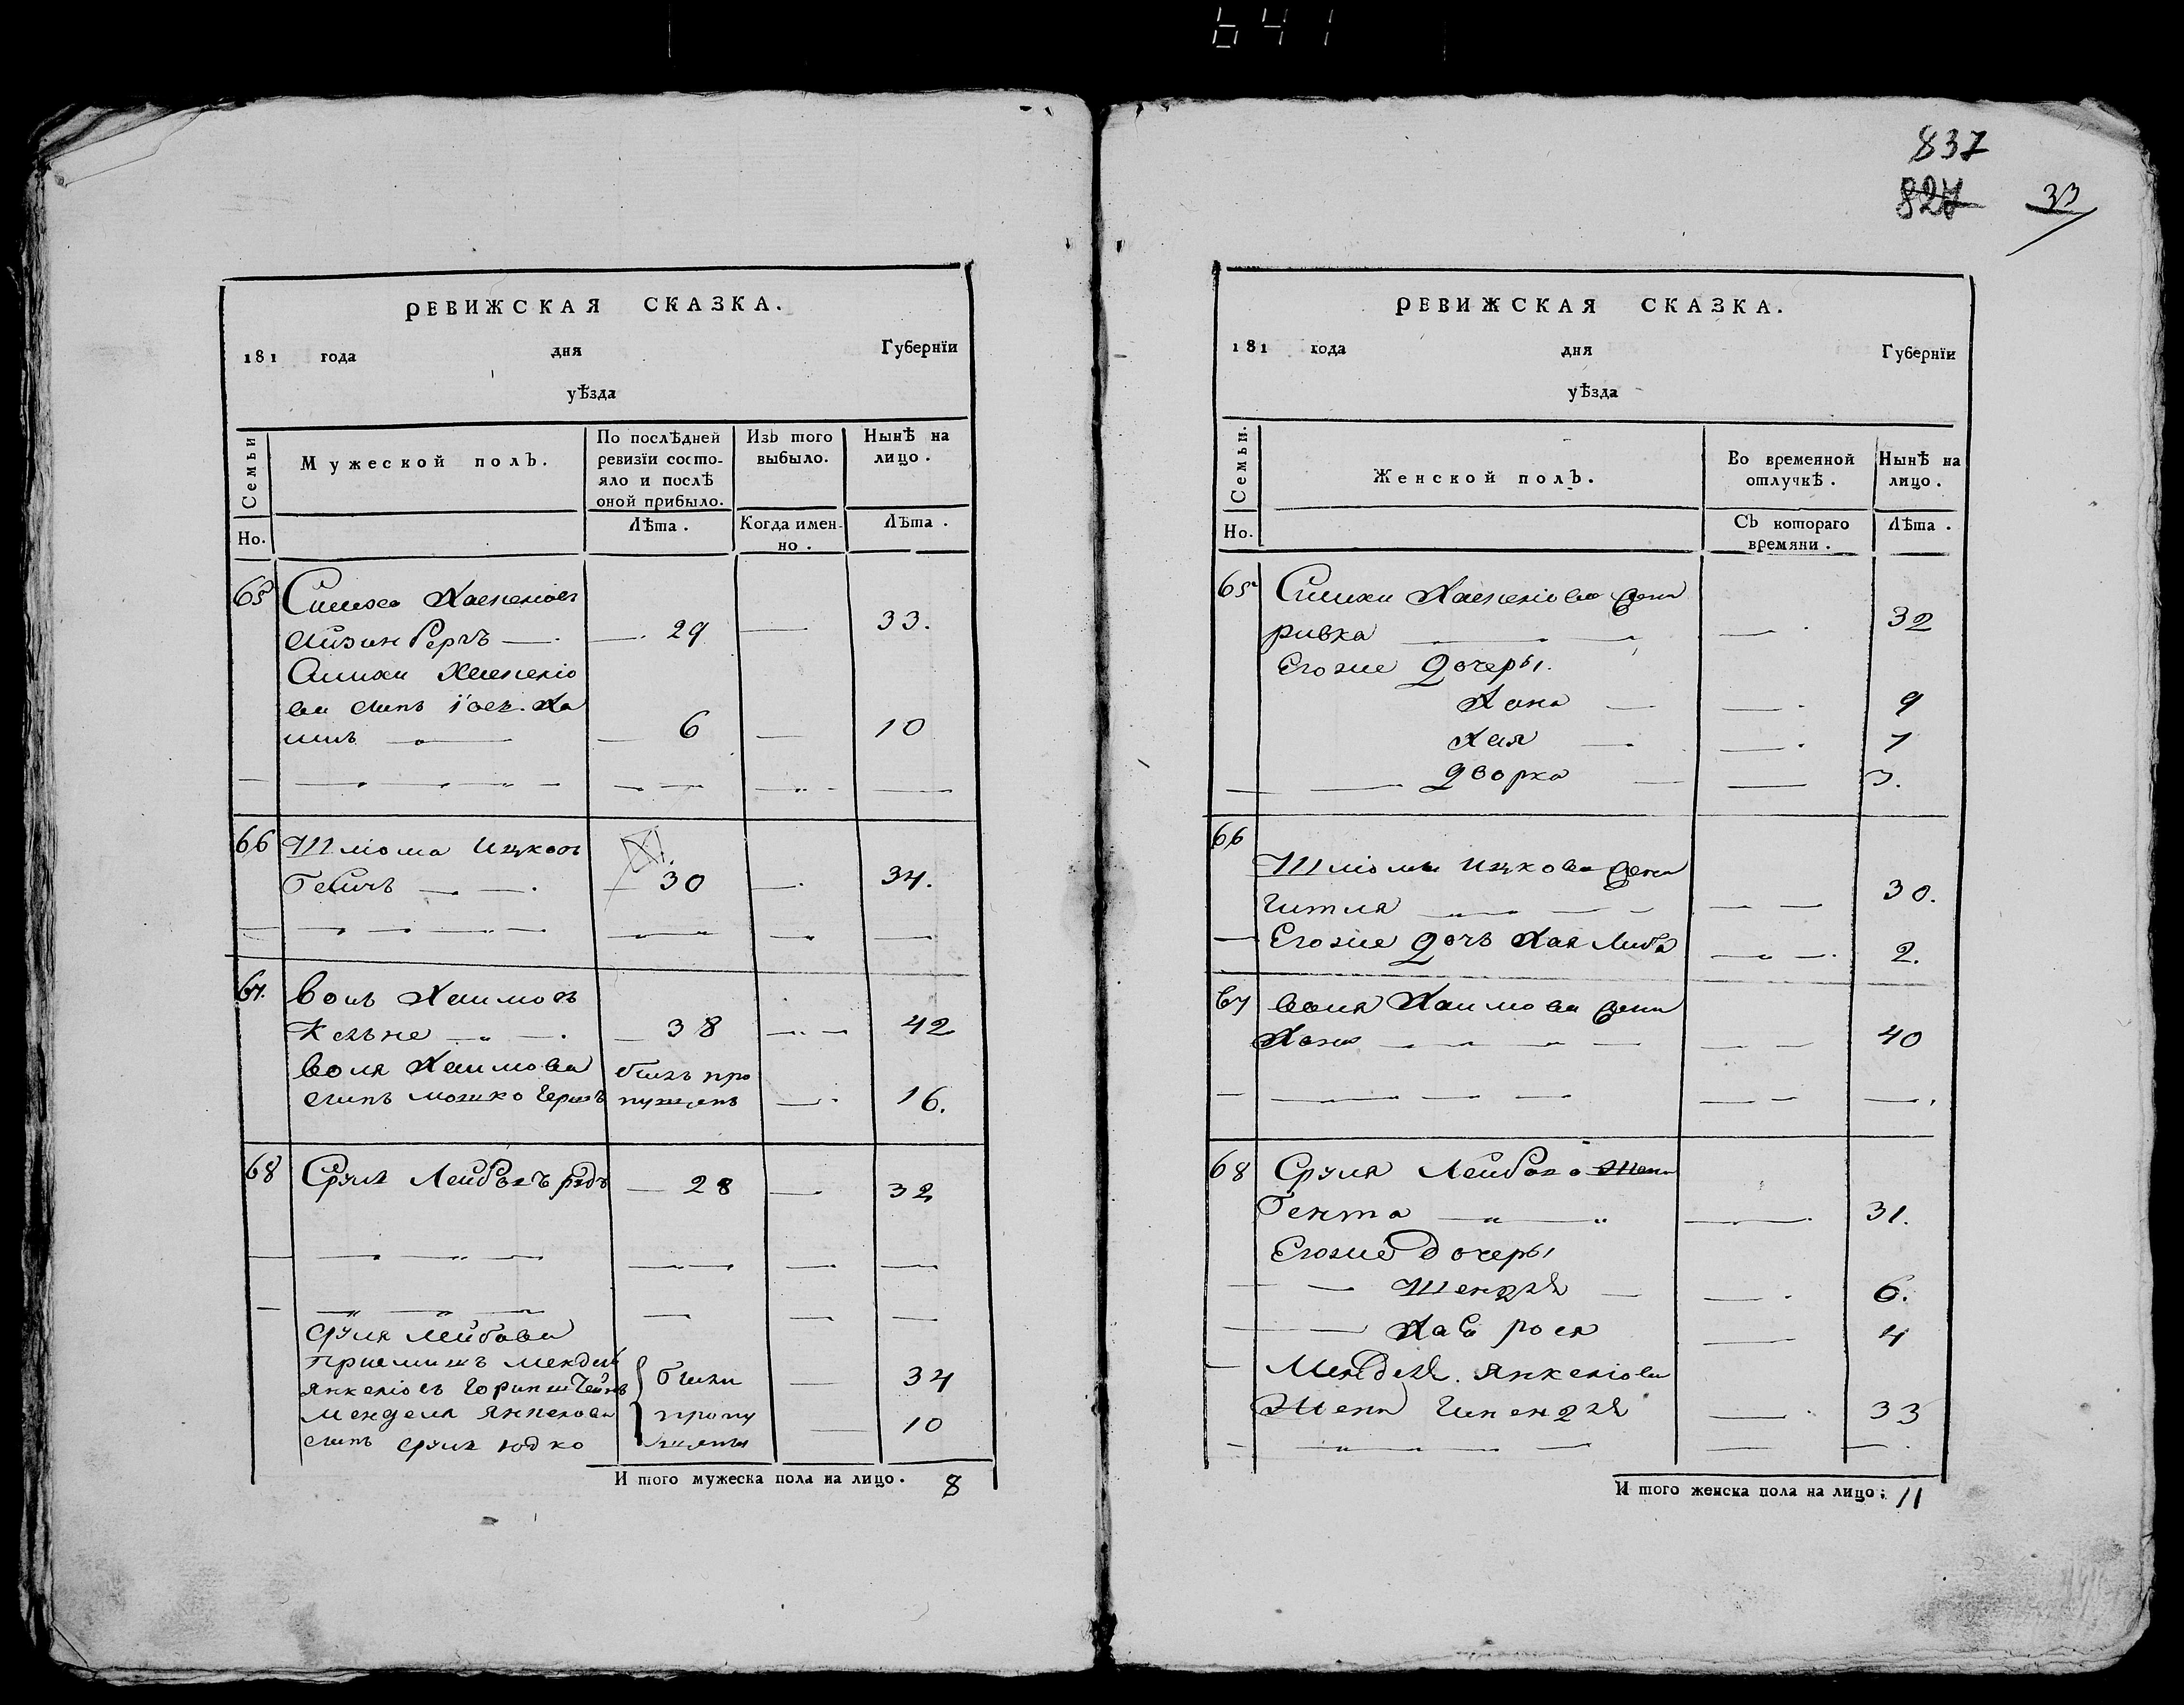 641
РЕВИЖСКАЯ СКАЗКА.
181 года дня Губернїи
уѣзда
Семьи
Мужеской полъ.
По послѣдней ревизїи состояло и послѣ оной прибыло.
Изъ того выбыло.
Нынѣ на лицо.
Но.
Лѣта.
Когда именно.
Лѣта.
65 Симха
29 33.
Симхи
сынъ
6 10
66 Шлiома Ицковъ
30 34.
67.Воль Хаимовъ
38 42
Воля Хаимова былъ про
сынъ Мошко Гершъ пущенъ 16.
68 Сруль 28 32
Сруля Лейбова
Приемышъ Мендель
были 34
Менделя
пропу 10
сынъ Сруль Юдко щены
И того мужеска пола на лицо. 8
837
827 33
РЕВИЖСКАЯ СКАЗКА.
181 года дня Губернїи
уѣзда
Семьи.
Женской полъ.
Во временной отлучкѣ.
Нынѣ на лицо.
Но.
Съ котораго времяни.
Лѣта.
65 Симхи жена
Ривка 32
Егоже дочеры.
Хана 9
Хая 7
Дворка 3.
66
Шлiомы Ицкова жена
Гитля 30.
Егоже дочь Хая Либа 2.
67 Воля Хаимова жена
40
68 Сруля Лейбова жена
Гента 31.
Егоже дочеры
Шендля 6.
Хава Рося 4
Менделя Янкелiова
Жена 33
И того женска пола на лицо: 11